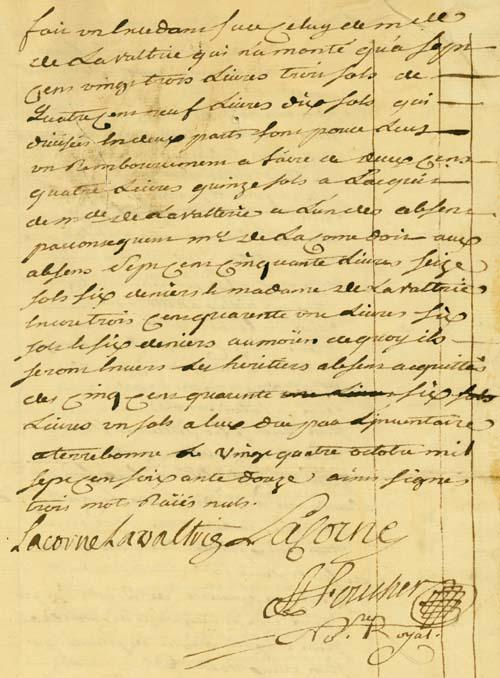 fait un Excedant sur Celuy de m elle
de La valtrie qui n'a monté qu'a sept
Cens vingt trois Livres trois sols de
Quatre Cens neuf Livres dix sols qui
divisés En deux parts font pour Eux
un Remboursement a faire de deux Cens
quatre Livres quinze sols a L'acquit
de m.de de La valterie a L'un des absens
par consequent m.r de La Corne doit aux
absens Sept Cens Cinquante Livres seize
sols six deniers & madame de La valtrie
Encore trois Cens quarente une Livres six
sols & six deniers au moïen de quoy ils
seront Envers Les heritiers absens acquittés
des Cinq Cens quarente une Livres six sols
Livres un sols a Eux due par L'inventaire
a terrebonne Le vingt quatre octobre mil
sept cens soixante douze ainsi signés
trois mots Raïés nuls.
Lacorne Lavaltrie LaCorne
Foucher
No.re Royal.